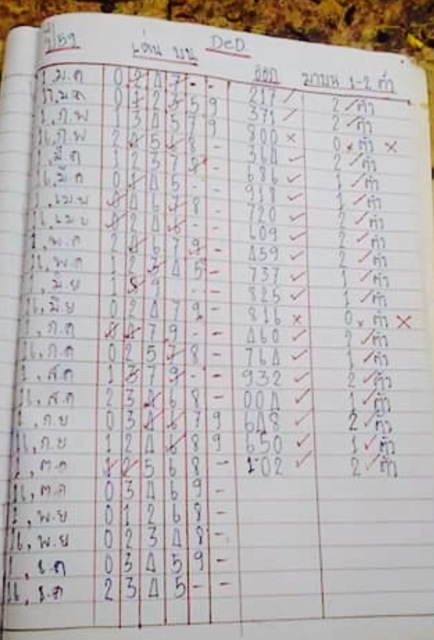 ปี 59 เด่น บน DeD. ออก มาบน 1-2 ตัว
1.ม.ค 0 2 4 7 - - 217 ✓ 2 ✓ ตัว
17.ม.ค 0 1 2 3 5 9 371 ✓ 2 ✓ ตัว
1.ก.พ 1 3 4 5 7 9 800 × 0 × ตัว ×
16.ก.พ 2 4 5 8 - 364 ✓ 2 ✓ ตัว
1.มี.ค 1 2 3 7 8 - 686 ✓ 1 ✓ ตัว
16.มี.ค 0 1 4 5 - 918 ✓ 1 ✓ ตัว
1.เม.ย 0 4 6 7 8 - 720 ✓ 2 ✓ ตัว
16.เม.ย 0 2 4 6 - 609 ✓ 2 ✓ ตัว
พ.ค 2 4 6 7 9 - 459 ✓ 2 ✓ ตัว
16.พ.ค 1 2 3 4 5 - 737 ✓ 1 ✓ ตัว
1.มิ.ย 1 8 9 - - 825 ✓ 1 ✓ ตัว
16.มิ.ย 0 2 4 7 9 - 816 × 0 × ตัว ×
1.ก.ค 7 9 - 460 ✓ 2 ✓ ตัว
16.ก.ค 0 2 5 7 8 - 764 ✓ 1 ✓ ตัว
1.ส.ค 1 3 7 9 - - 932 ✓ 2 ✓ ตัว
16.ส.ค 2 3 4 6 8 - 004 ✓ 1 ✓ ตัว
1.ก.ย 0 3 4 6 7 9 648 ✓ 2 ✓ ตัว
16.ก.ย 1 2 4 6 8 9 650 ✓ 1 ✓ ตัว
1.ต.ค 1 2 5 6 8 - 102 ✓ 2 ✓ ตัว
16.ต.ค 0 3 4 6 9 -
1.พ.ย 0 1 2 6 8 -
16.พ.ย 0 2 3 4 8 -
1.ธ.ค 0 3 4 5 9 -
16.ธ.ค 2 3 4 5 - -